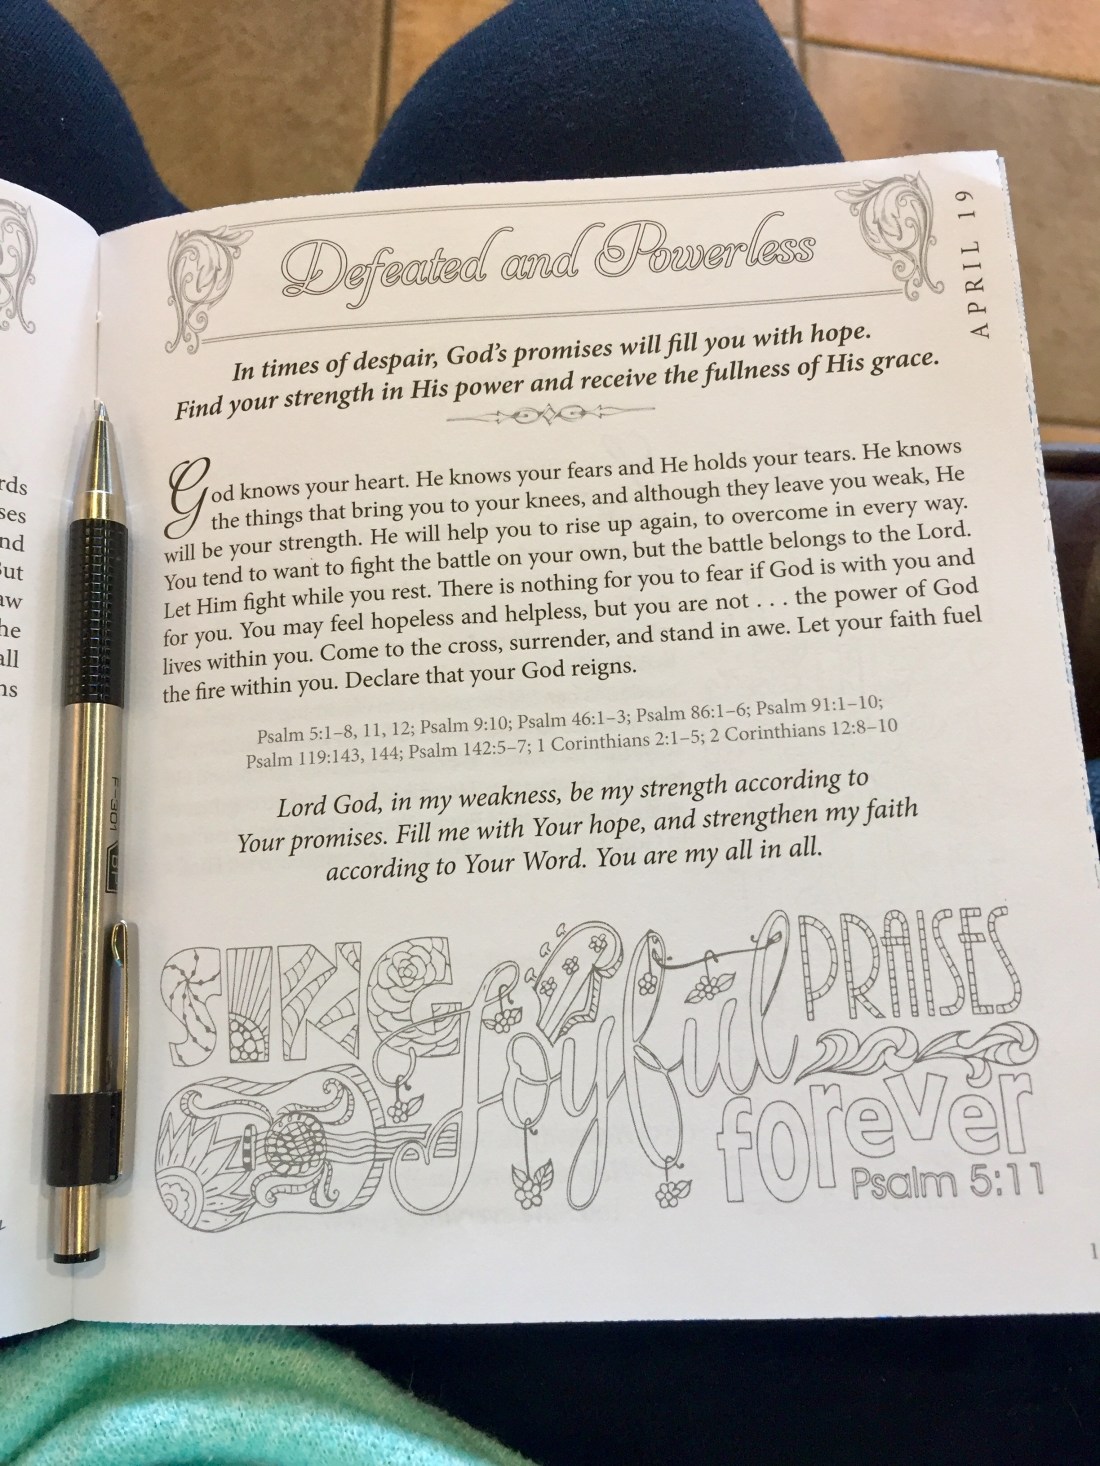 rds
ses
nd
But
aw
he
all
ns
APRIL 19
Defeated and Powerless
In times of despair, God's promises will fill you with hope.
Find your strength in His power and receive the fullness of His grace.
God knows your heart. He knows your fears and He holds your tears. He knows
the things that bring you to your knees, and although they leave you weak, He
will be your strength. He will help you to rise up again, to overcome in every way.
You tend to want to fight the battle on your own, but the battle belongs to the Lord.
Let Him fight while you rest. There is nothing for you to fear if God is with you and
for you. You may feel hopeless and helpless, but you are not . . . the power of God
lives within you. Come to the cross, surrender, and stand in awe. Let your faith fuel
the fire within you. Declare that your God reigns.
Psalm 5:1–8, 11, 12; Psalm 9:10; Psalm 46:1–3; Psalm 86:1–6; Psalm 91:1–10;
Psalm 119:143, 144; Psalm 142:5–7; 1 Corinthians 2:1–5; 2 Corinthians 12:8–10
Lord God, in my weakness, be my strength according to
Your promises. Fill me with Your hope, and strengthen my faith
according to Your Word. You are my all in all.
SING Joyful PRAISES
forever
Psalm 5:11
1
F-301